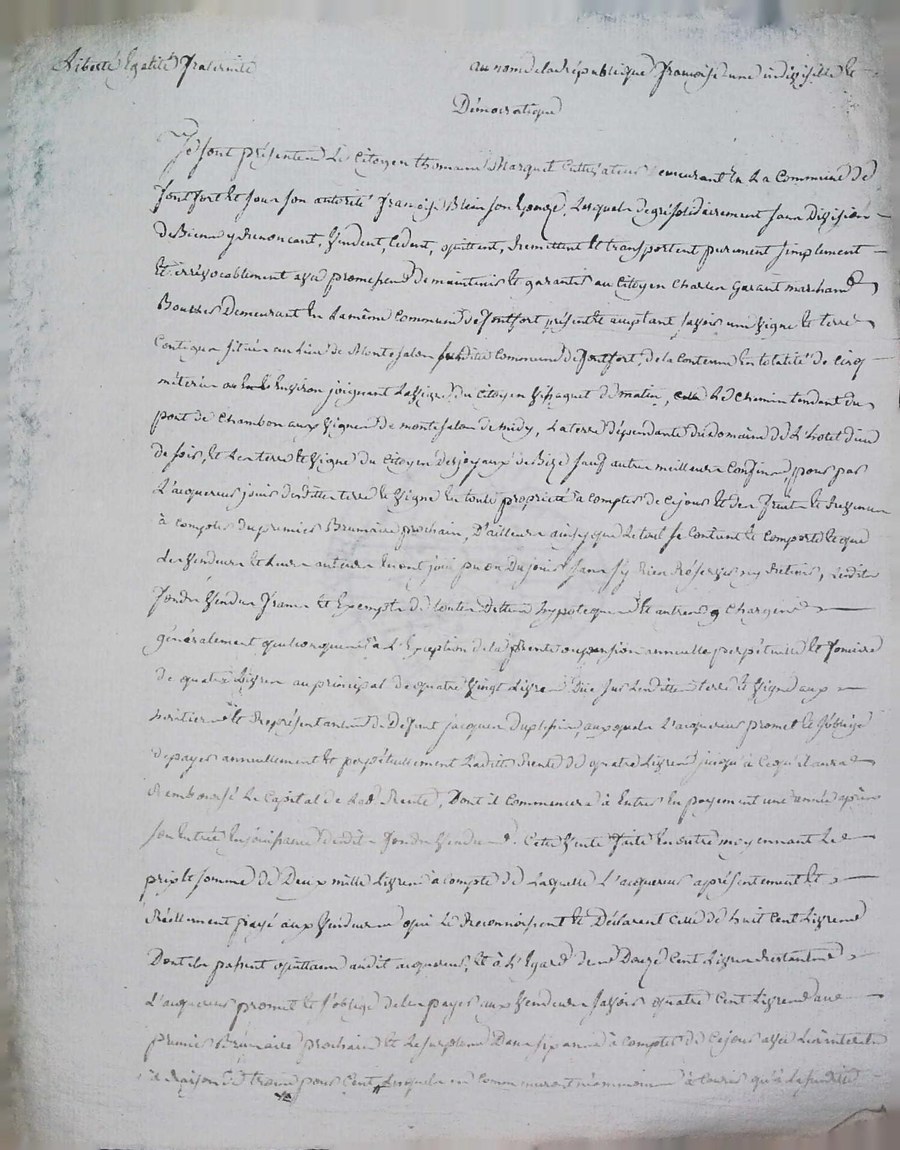 Liberté Egalité Fraternité
au nom de la république françoise une indivisible et
Démocratique
Se sont présentés Le Citoyen thomas Marquet Cultivateur demeurant En La Commune de
fontfort Et sous son autorité françoise Blein son Epouze, Lesquels de gré solidairement sans Division
de Biens y Renoncant, Vendent, Cedent, quittent, Remettent Et transportent purement simplement
Et irrévocablement avec promesse de maintenir Et garantir au Citoyen Charles Garant marchand
Demeurant En La même Commune de fontfort présent Et acceptant savoir une Vigne Et terre
Contigus situés au Lieu de Montesalon susdite Commune de fontfort, de la Contenue En totalité de Cinq
méterées ou Environ joignant La Vigne du Citoyen de matin, Le Chemin tendant du
pont de Chambon aux Vignes de montesalon de midy, La terre dépendante du domaine de L'hotel dieu
de soir, Et Les terre Et Vigne du Citoyen Desjoyaux de Bize sauf autres meilleurs Confins, pour par
L'acquereur jouir desdittes terre Et Vigne En toute propriété à Compter de Ce jour Et des fruits Et Revenus
à Compter du premier Brumaire prochain, D'ailleurs ainsy que Le tout se Contient Et Comporte Et que
Les Vendeurs Et Leurs auteurs En ont joui pu ou du jouir sans s'y Rien Réserver ny Retenir, Lesdits
fonds Vendus francs Et Exempts de toutes Dettes hypoteques Et autres Charges
généralement quelconques à L'Exception de la Rente ou pension annuelle perpétuelle Et fonciere
de quatre Livres au principal de quatre Vingt Livres Due sur Lesdittes terre Et Vigne aux
héritiers Et Représentants de Defunt jacques auxquels L'acquereur promet Et s'oblige
de payer annuellement Et perpétuellement Laditte Rente de quatre Livres jusqu'à Ce qu'il aura
Remboursé Le Capital de Lad. Rente, Dont il Commencera à Entrer En payement une année après
son Entrée En jouissance desdits fonds Vendus. Cette Vente faite En outre moyennant Le
prix Et somme de Deux mille Livres a Compte de Laquelle L'acquereur a présentement Et
Réellement payé aux Vendeurs qui Le Reconnoissent Et Déclarent Celle de huit Cent Livres
Dont ils passent quittance audit acquereur, Et à L'Egard des Douze Cent Livres Restantes
L'acquereur promet Et s'oblige de les payer aux Vendeurs savoir quatre Cent Livres au
premier Brumaire prochain Et Le surplus Dans six ans à Compter de Ce jour avec Les intérêts
à Raison de trois pour Cent, Lesquels ne Commenceront néanmoins à Courir qu'à